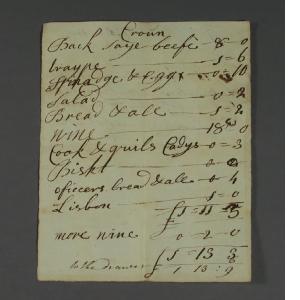 Croun
Back saye beefe 8 - 0
trayne 1 = 6
Spinadge & Eggs 0 = 10
Salad 0 = 2
Bread & ale 1 = 2
wine 18 0
Cook & quils Ladys 0 = 3
Biskt 0
officers bread & ale 0 4
Lisbon 1 0
£1 = 11 = 5
more wine 0 2 0
£1 = 13
to the drawer 1 13 : 9